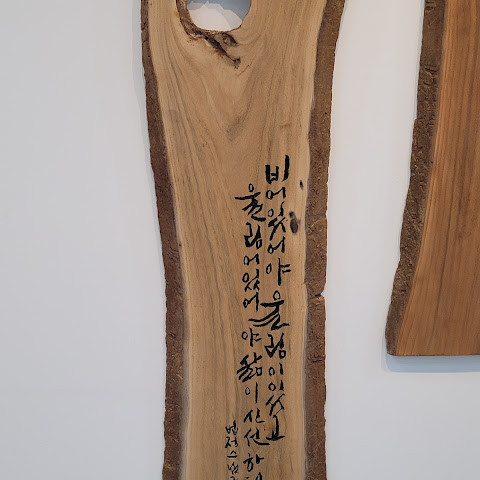 비어있어야 울림이있고
울림이있어야 삶이신선하
법정스님